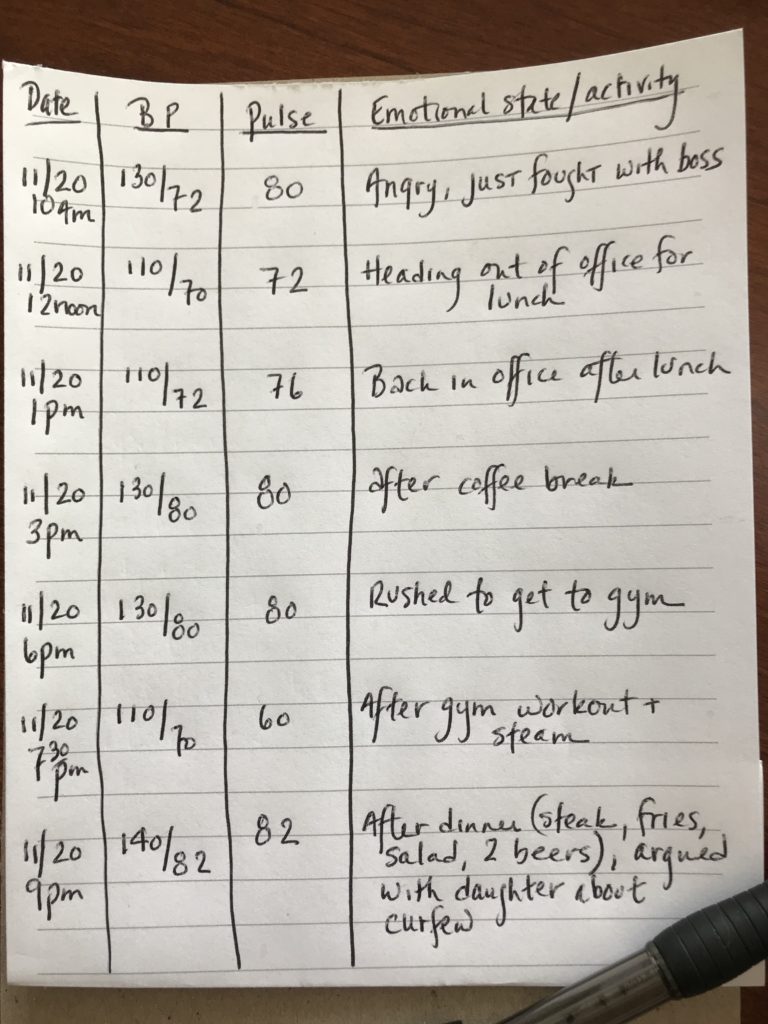 Date BP Pulse Emotional state/activity
11/20 10am 130/72 80 Angry, just fought with boss
11/20 110/70 72 Heading out of office for
12noon lunch
11/20 110/72 76 Back in office after lunch
1pm
11/20 130/80 80 after coffee break
3pm
11/20 130/80 80 Rushed to get to gym
6pm
11/20 110/70 60 After gym workout +
730 pm steam
11/20 140/82 82 After dinner (steak, fries,
9pm salad, 2 beers), argued
with daughter about
curfew